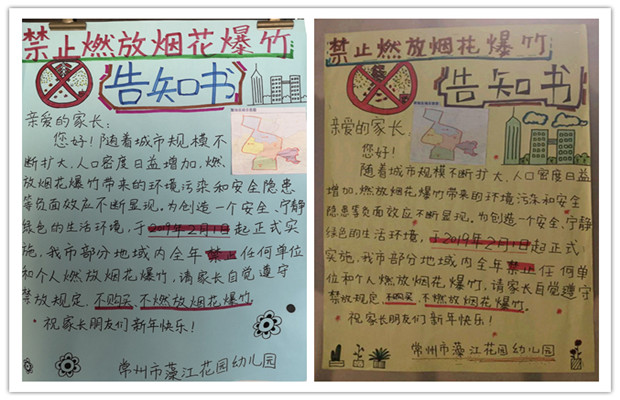 禁止燃放烟花爆竹
告知书
亲爱的家长:
您好!随着城市规模不
断扩大,人口密度日益增加,燃
放烟花爆竹带来的环境污染和安全隐患
等负面效应不断显现。为创造一个安全、宁静
绿色的生活环境,于2019年2月1日起正式实
施,我市部分地域内全年禁止任何单位
和个人燃放烟花爆竹,请家长自觉遵守
禁放规定,不购买、不燃放烟花爆竹。
祝家长朋友们新年快乐!
常州市藻江花园幼儿园
禁止燃放烟花爆竹
告知书
亲爱的家长:
您好!
随着城市规模不断扩大,人口密度日益
增加,燃放烟花爆竹带来的环境污染和安全
隐患等负面效应不断显现。为创造一个安全、宁静
绿色的生活环境,于2019年2月1日起正式
实施,我市部分地域内全年禁止任何单
位和个人燃放烟花爆竹,请家长自觉遵守
禁放规定,不购买、不燃放烟花爆竹。
祝家长朋友们新年快乐!
常州市藻江花园幼儿园